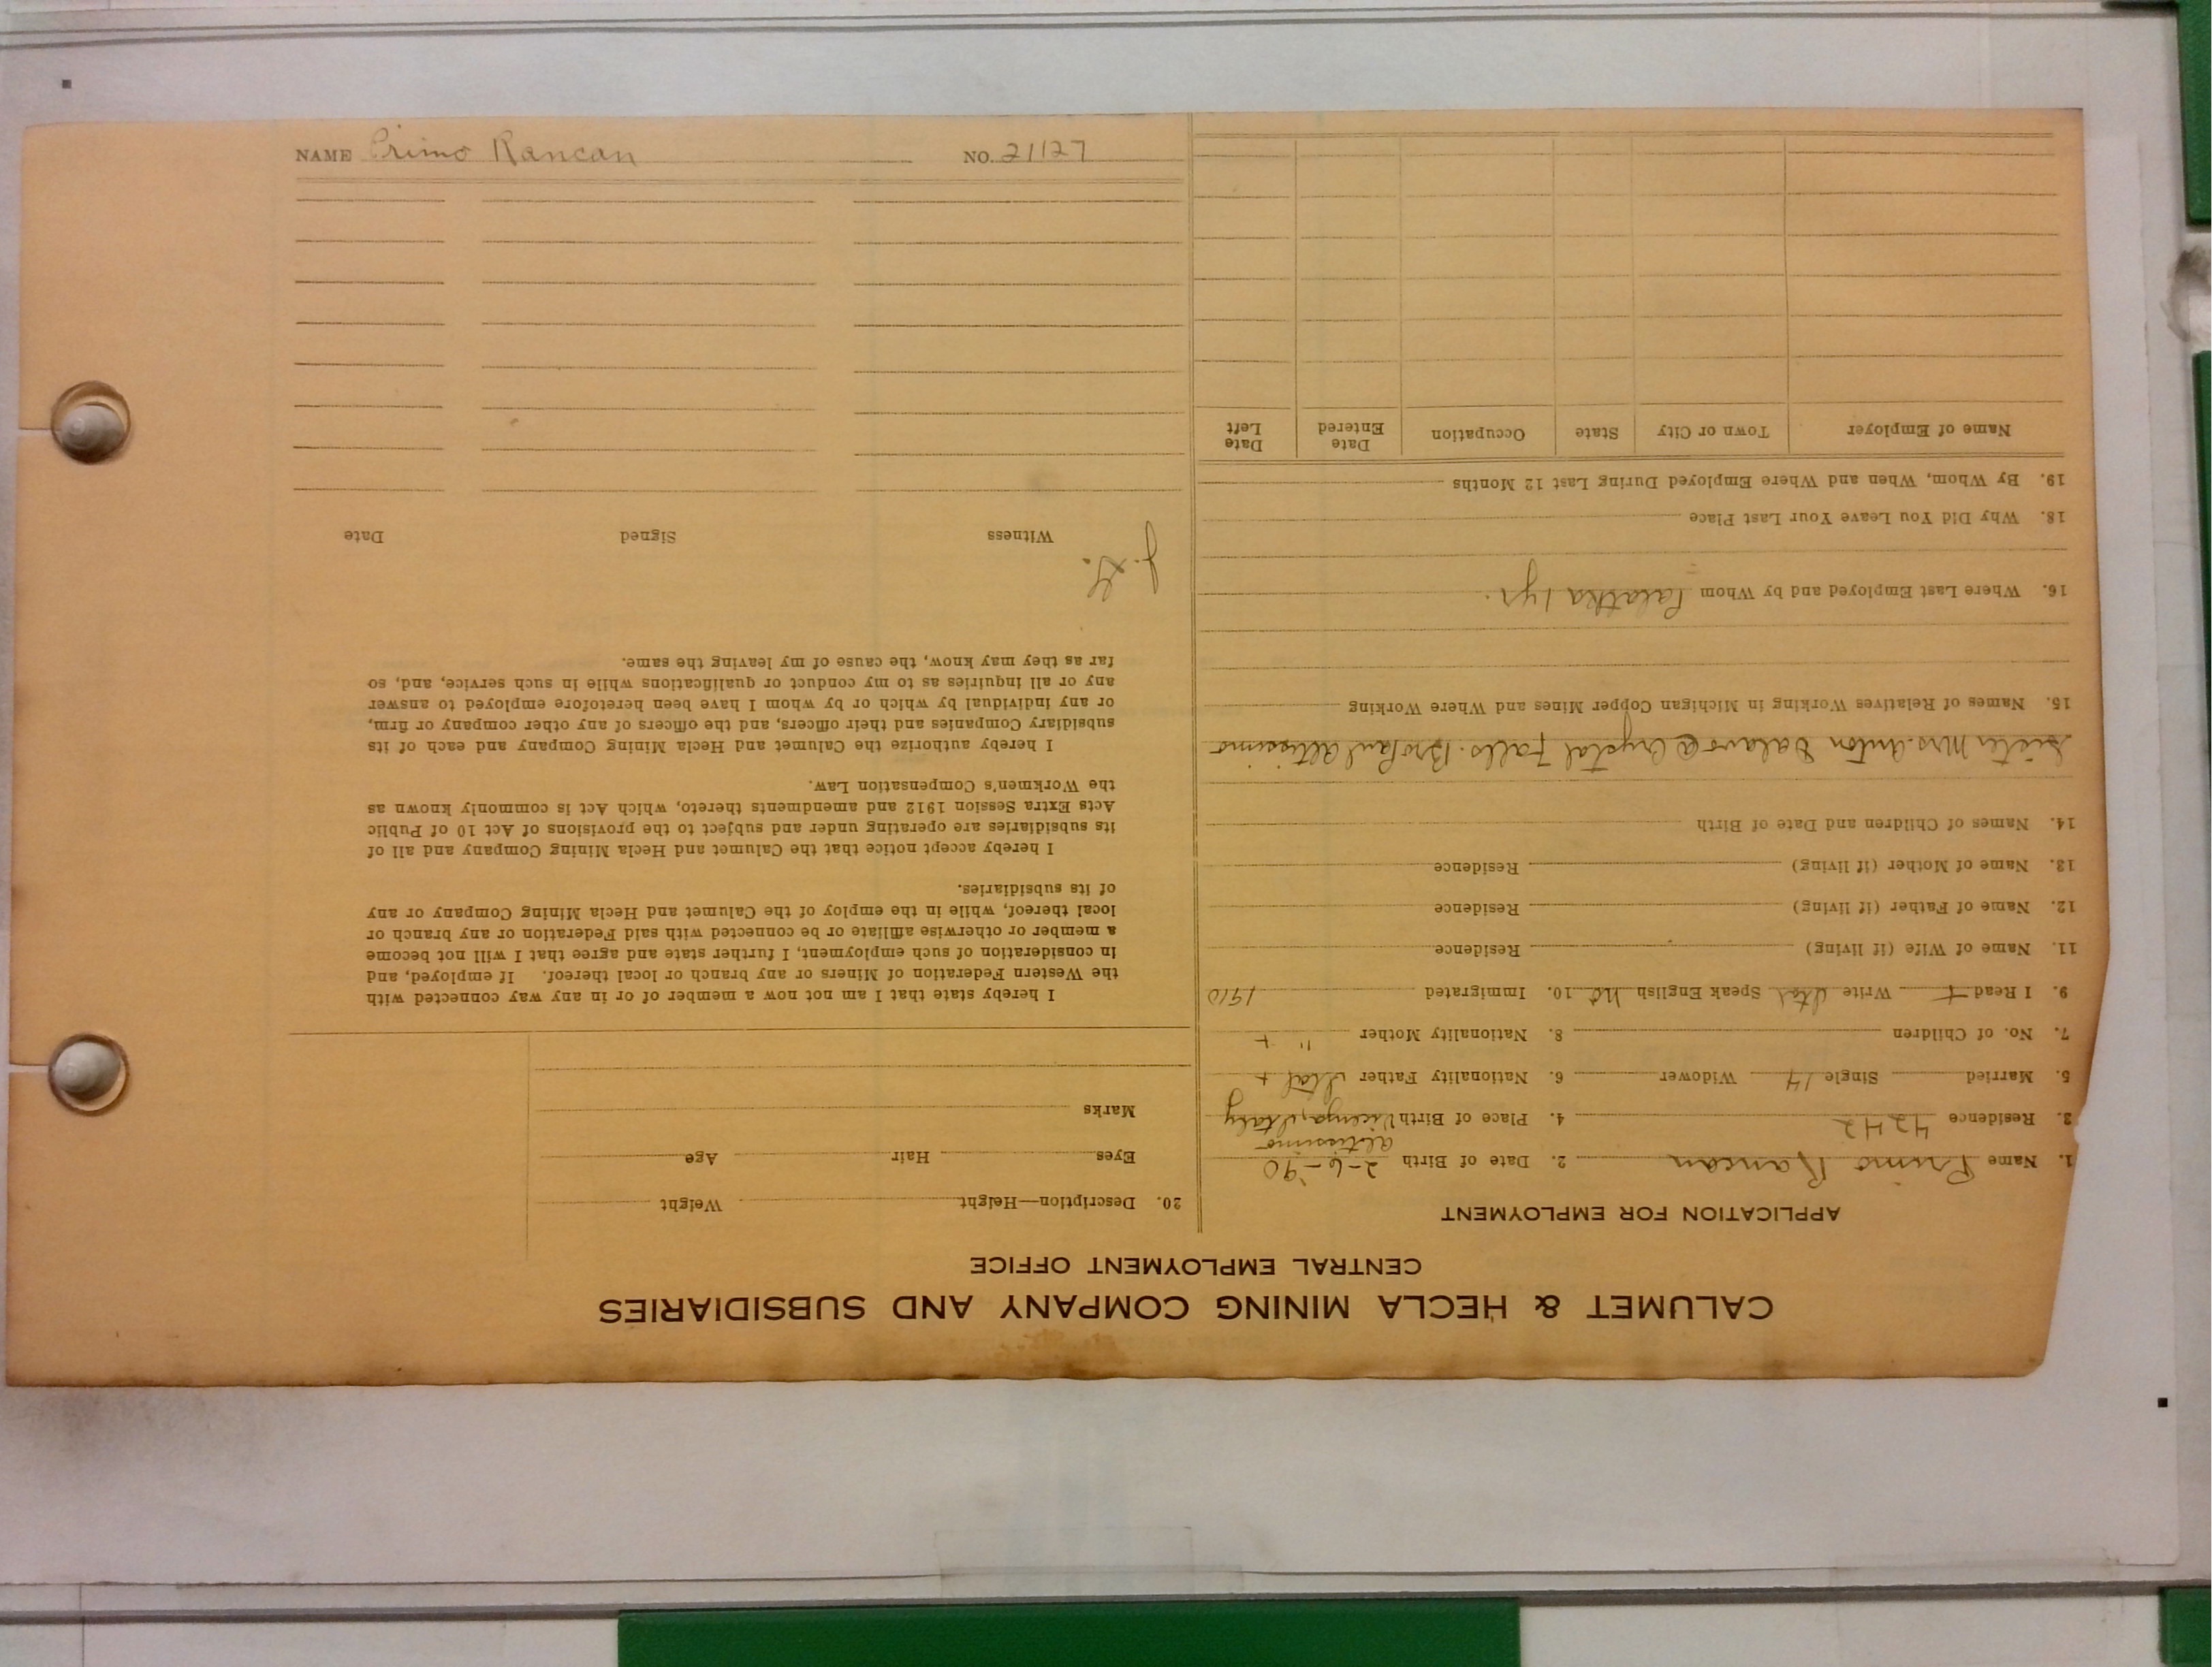 CALUMET & HECLA MINING COMPANY AND SUBSIDIARIES
CENTRAL EMPLOYMENT OFFICE
APPLICATION FOR EMPLOYMENT
1. Name Primo Rancan 2. Date of Birth 2-6-90
Altissimo
3. Residence 4242 4. Place of Birth Vicenza, Italy
5. Married Single 14 Widower 6. Nationality Father Ital +
7. No. of Children 8. Nationality Mother " +
9. I Read + Write Ital Speak English no 10. Immigrated 1910
11. Name of Wife (if living) Residence
12. Name of Father (if living) Residence
13. Name of Mother (if living) Residence
14. Names of Children and Date of Birth
Sister Mrs. Anton @ Crystal Falls. Bro Paul Altissimo
15. Names of Relatives Working in Michigan Copper Mines and Where Working
16. Where Last Employed and by Whom 1 yr.
18. Why Did You Leave Your Last Place
19. By Whom, When and Where Employed During Last 12 Months
Name of Employer Town or City State Occupation Date Entered Date Left
20. Description—Height Weight
Eyes Hair Age
Marks
I hereby state that I am not now a member of or in any way connected with
the Western Federation of Miners or any branch or local thereof. If employed, and
in consideration of such employment, I further state and agree that I will not become
a member or otherwise affiliate or be connected with said Federation or any branch or
local thereof, while in the employ of the Calumet and Hecla Mining Company or any
of its subsidiaries.
I hereby accept notice that the Calumet and Hecla Mining Company and all of
its subsidiaries are operating under and subject to the provisions of Act 10 of Public
Acts Extra Session 1912 and amendments thereto, which Act is commonly known as
the Workmen's Compensation Law.
I hereby authorize the Calumet and Hecla Mining Company and each of its
subsidiary Companies and their officers, and the officers of any other company or firm,
or any individual by which or by whom I have been heretofore employed to answer
any or all inquiries as to my conduct or qualifications while in such service, and, so
far as they may know, the cause of my leaving the same.
Witness Signed Date
NAME Primo Rancan NO. 21127